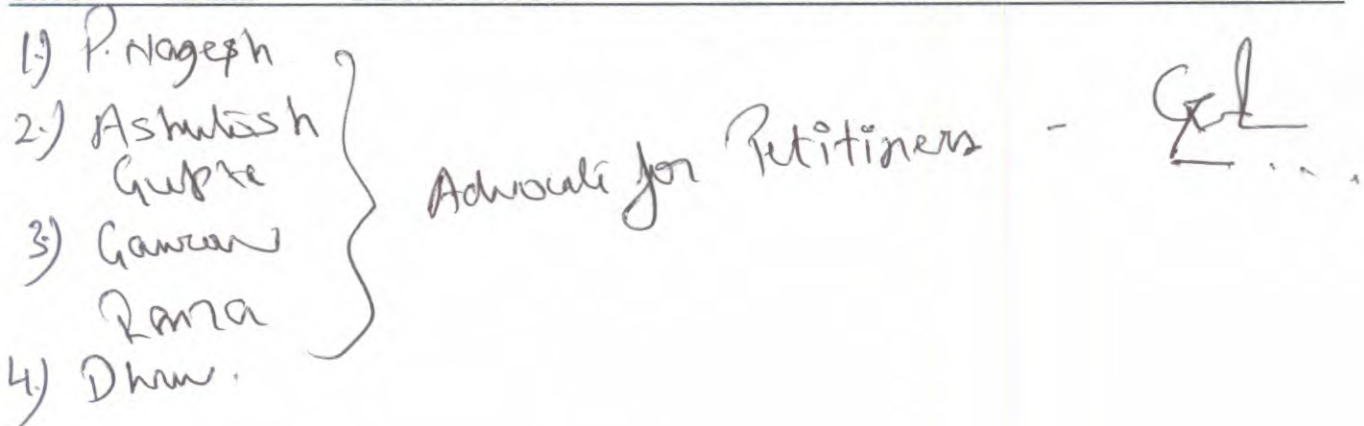 1.) P. Nagesh
2.) Ashutosh
Gupta
3) Gaurav
Rana
4.) Dhruv.
Advocate for Petitioners -